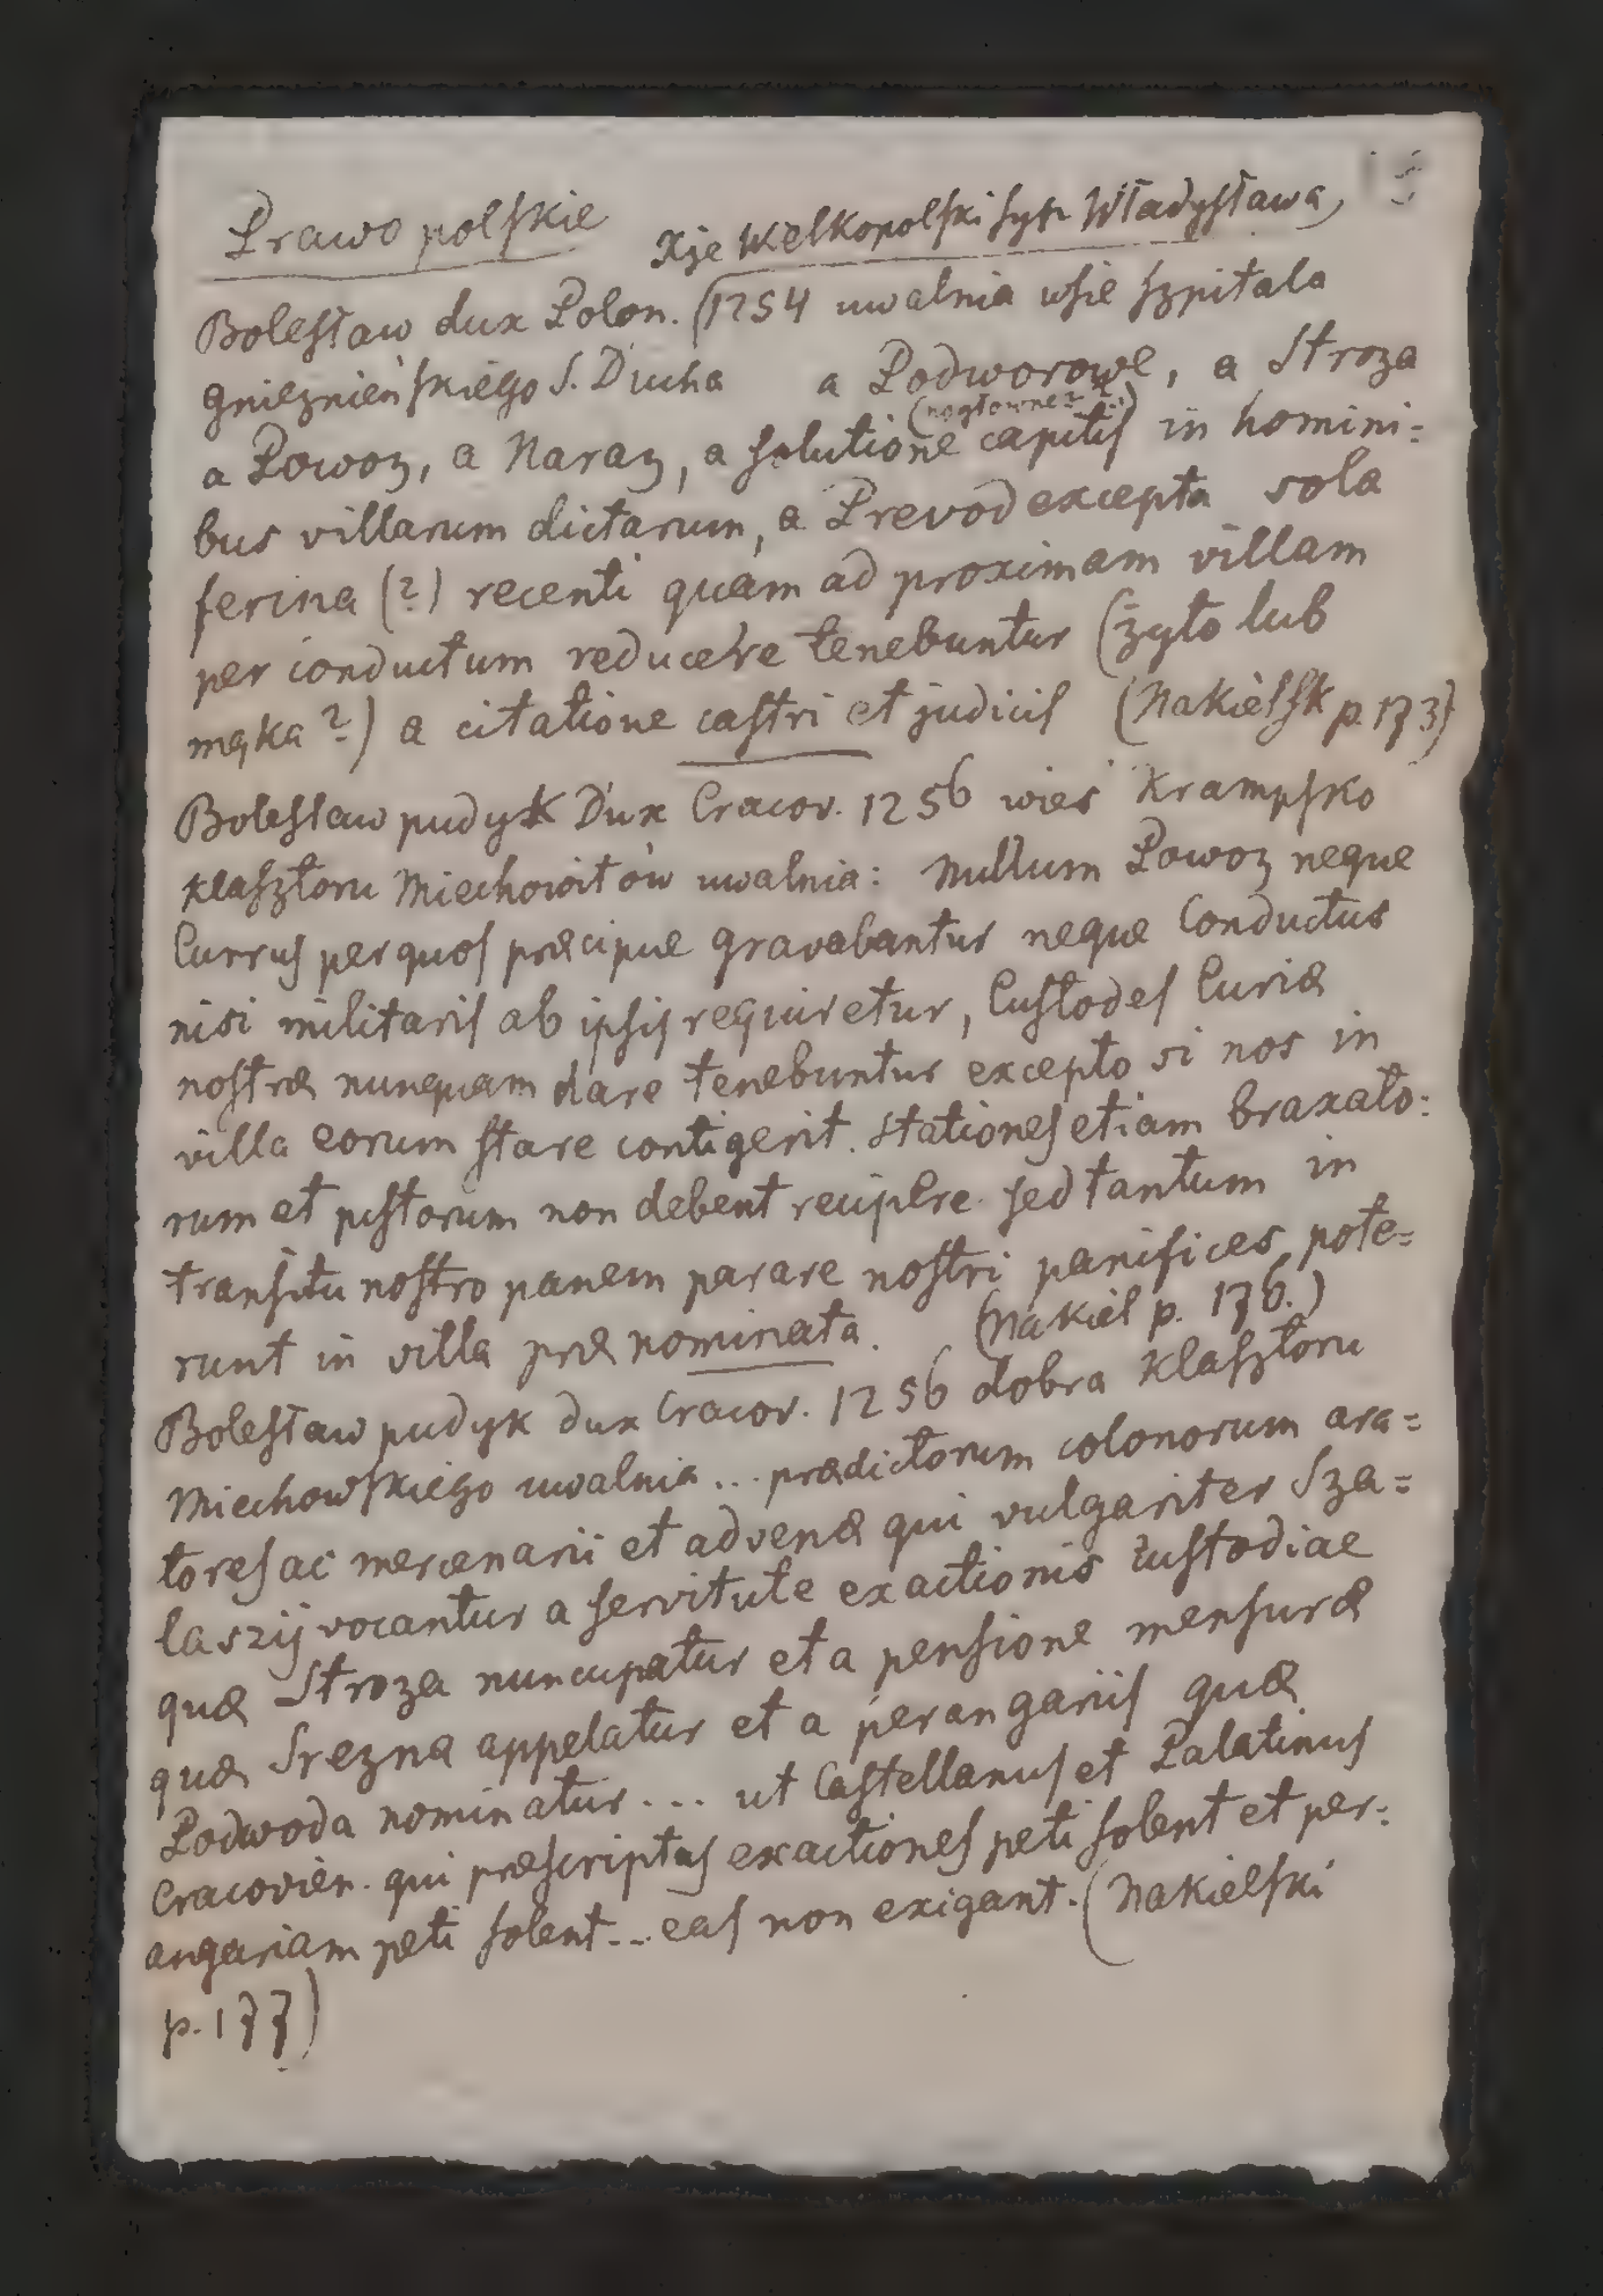 Prawo polskie
Xże Wielkopolski syn Władysława
Bolesław dux Polon. (1254 uwalnia wsie szpitala
gnieznieńskiego S. Ducha a Podworowe, a Stroza
(pogłowne? ..)
a Powoz, a Naraz, a solutione capitis in homini=
bus villarum dictarum, a Prevod excepta sola
ferina (?) recenti quam ad proximam villam
per conductum reducere tenebuntur (żyto lub
mąka?) a citatione castri et judiciis (Nakielsk p. 173)
Bolesław pudyk Dux Cracov. 1256 wieś Krampsko
klasztoru Miechowitów uwalnia: Nullum Powoz neque
Currus per quos præcipue gravabantur neque Conductus
nisi militaris ab ipsis requiretur, Custodes Curiæ
nostræ nunquam dare tenebuntur excepto si nos in
villa eorum stare contigerit. Stationes etiam braxato=
rum et pistorum non debent recipere sed tantum in
transitu nostro panem parare nostri panifices pote=
runt in villa prænominata. (Nakiel p. 176.)
Bolesław pudyk dux Cracov. 1256 dobra klasztoru
Miechowskiego uwalnia ... prædictorum colonorum ara=
tores ac mercenarii et advenæ qui vulgariter Sza=
laszij vocantur a servitute exactionis custodiae
quæ Stroza nuncupatur et a pensione mensuræ
quæ Srezna appelatur et a perangariis quæ
Podwoda nominatur ... ut Castellanus et Palatinus
Cracovien. qui præscriptas exactiones peti solent et per=
angariam peti solent... eas non exigant. (Nakielski
p. 177)